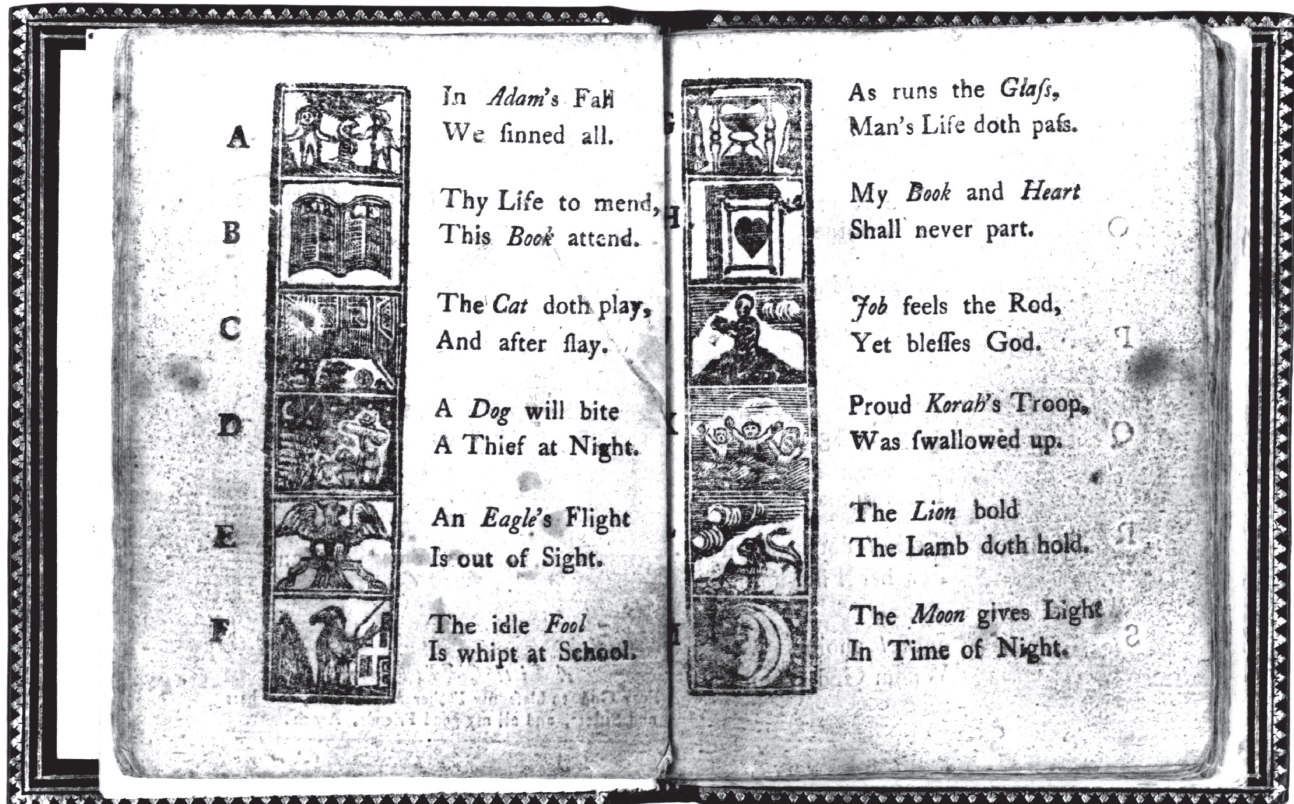 A
In Adam's Fall
We ſinned all.
B
Thy Life to mend,
This Book attend.
C
The Cat doth play,
And after ſlay.
D
A Dog will bite
A Thief at Night.
E
An Eagle's Flight
Is out of Sight.
F
The idle Fool
Is whipt at School.
As runs the Glaſs,
Man's Life doth paſs.
H
My Book and Heart
Shall never part.
Job feels the Rod,
Yet bleſſes God.
K
Proud Korah's Troop,
Was ſwallowed up.
The Lion bold
The Lamb doth hold.
M
The Moon gives Light
In Time of Night.